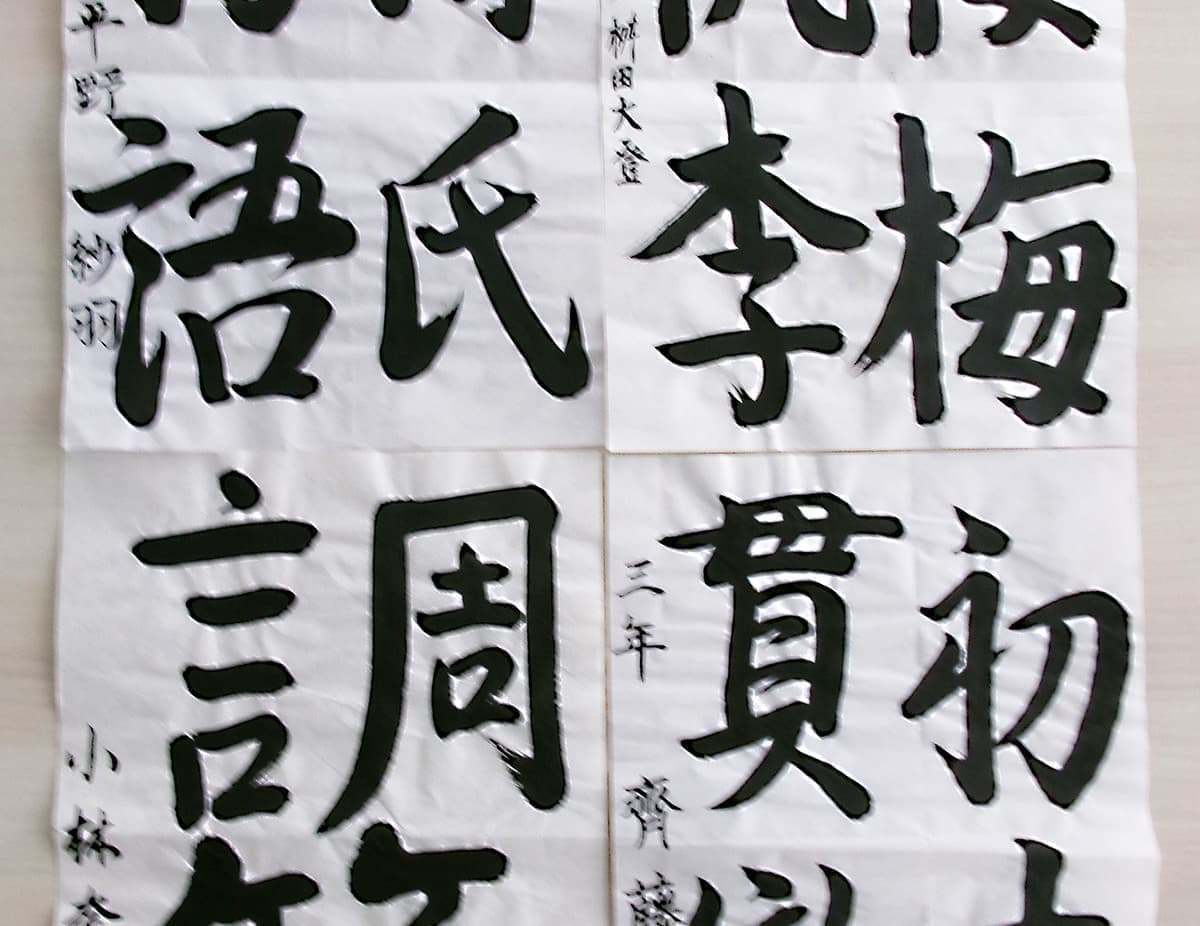 梅
李
桝田大登
氏
語
平野紗羽
初
貫
三年 齊藤
周
言
小林